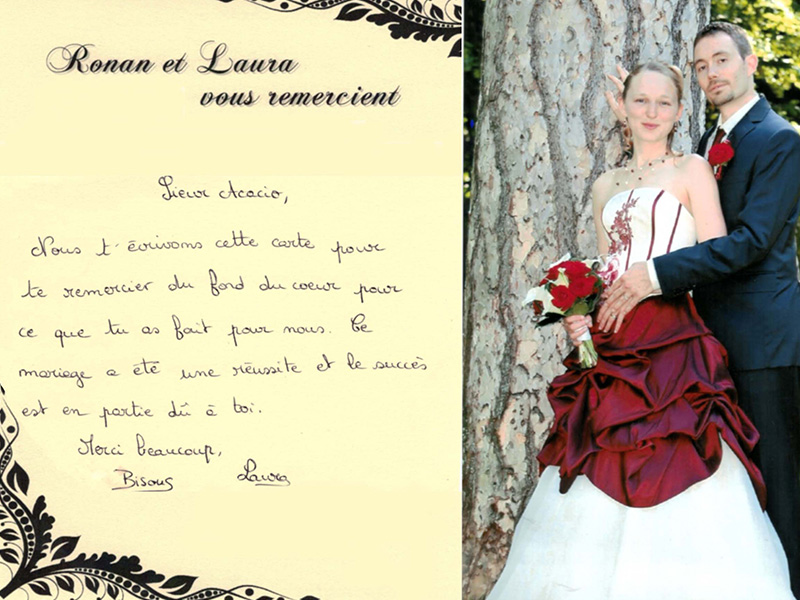 Ronan et Laura
vous remercient
Sieur Acacio,
Nous t'écrivons cette carte pour
te remercier du fond du coeur pour
ce que tu as fait pour nous. Ce
mariage a été une réussite et le succès
est en partie dû à toi.
Merci beaucoup,
Bisous Laura